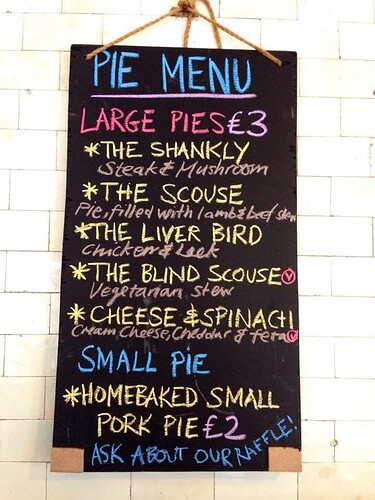 PIE MENU
LARGE PIES £3
*THE SHANKLY
Steak & Mushroom
*THE SCOUSE
Pie, filled with lamb & beef stew
*THE LIVER BIRD
Chicken & Leek
*THE BLIND SCOUSE V
Vegetarian Stew
*CHEESE & SPINACH
Cream Cheese, Cheddar & feta V
SMALL PIE
*HOMEBAKED SMALL
PORK PIE £2
ASK ABOUT OUR RAFFLE!